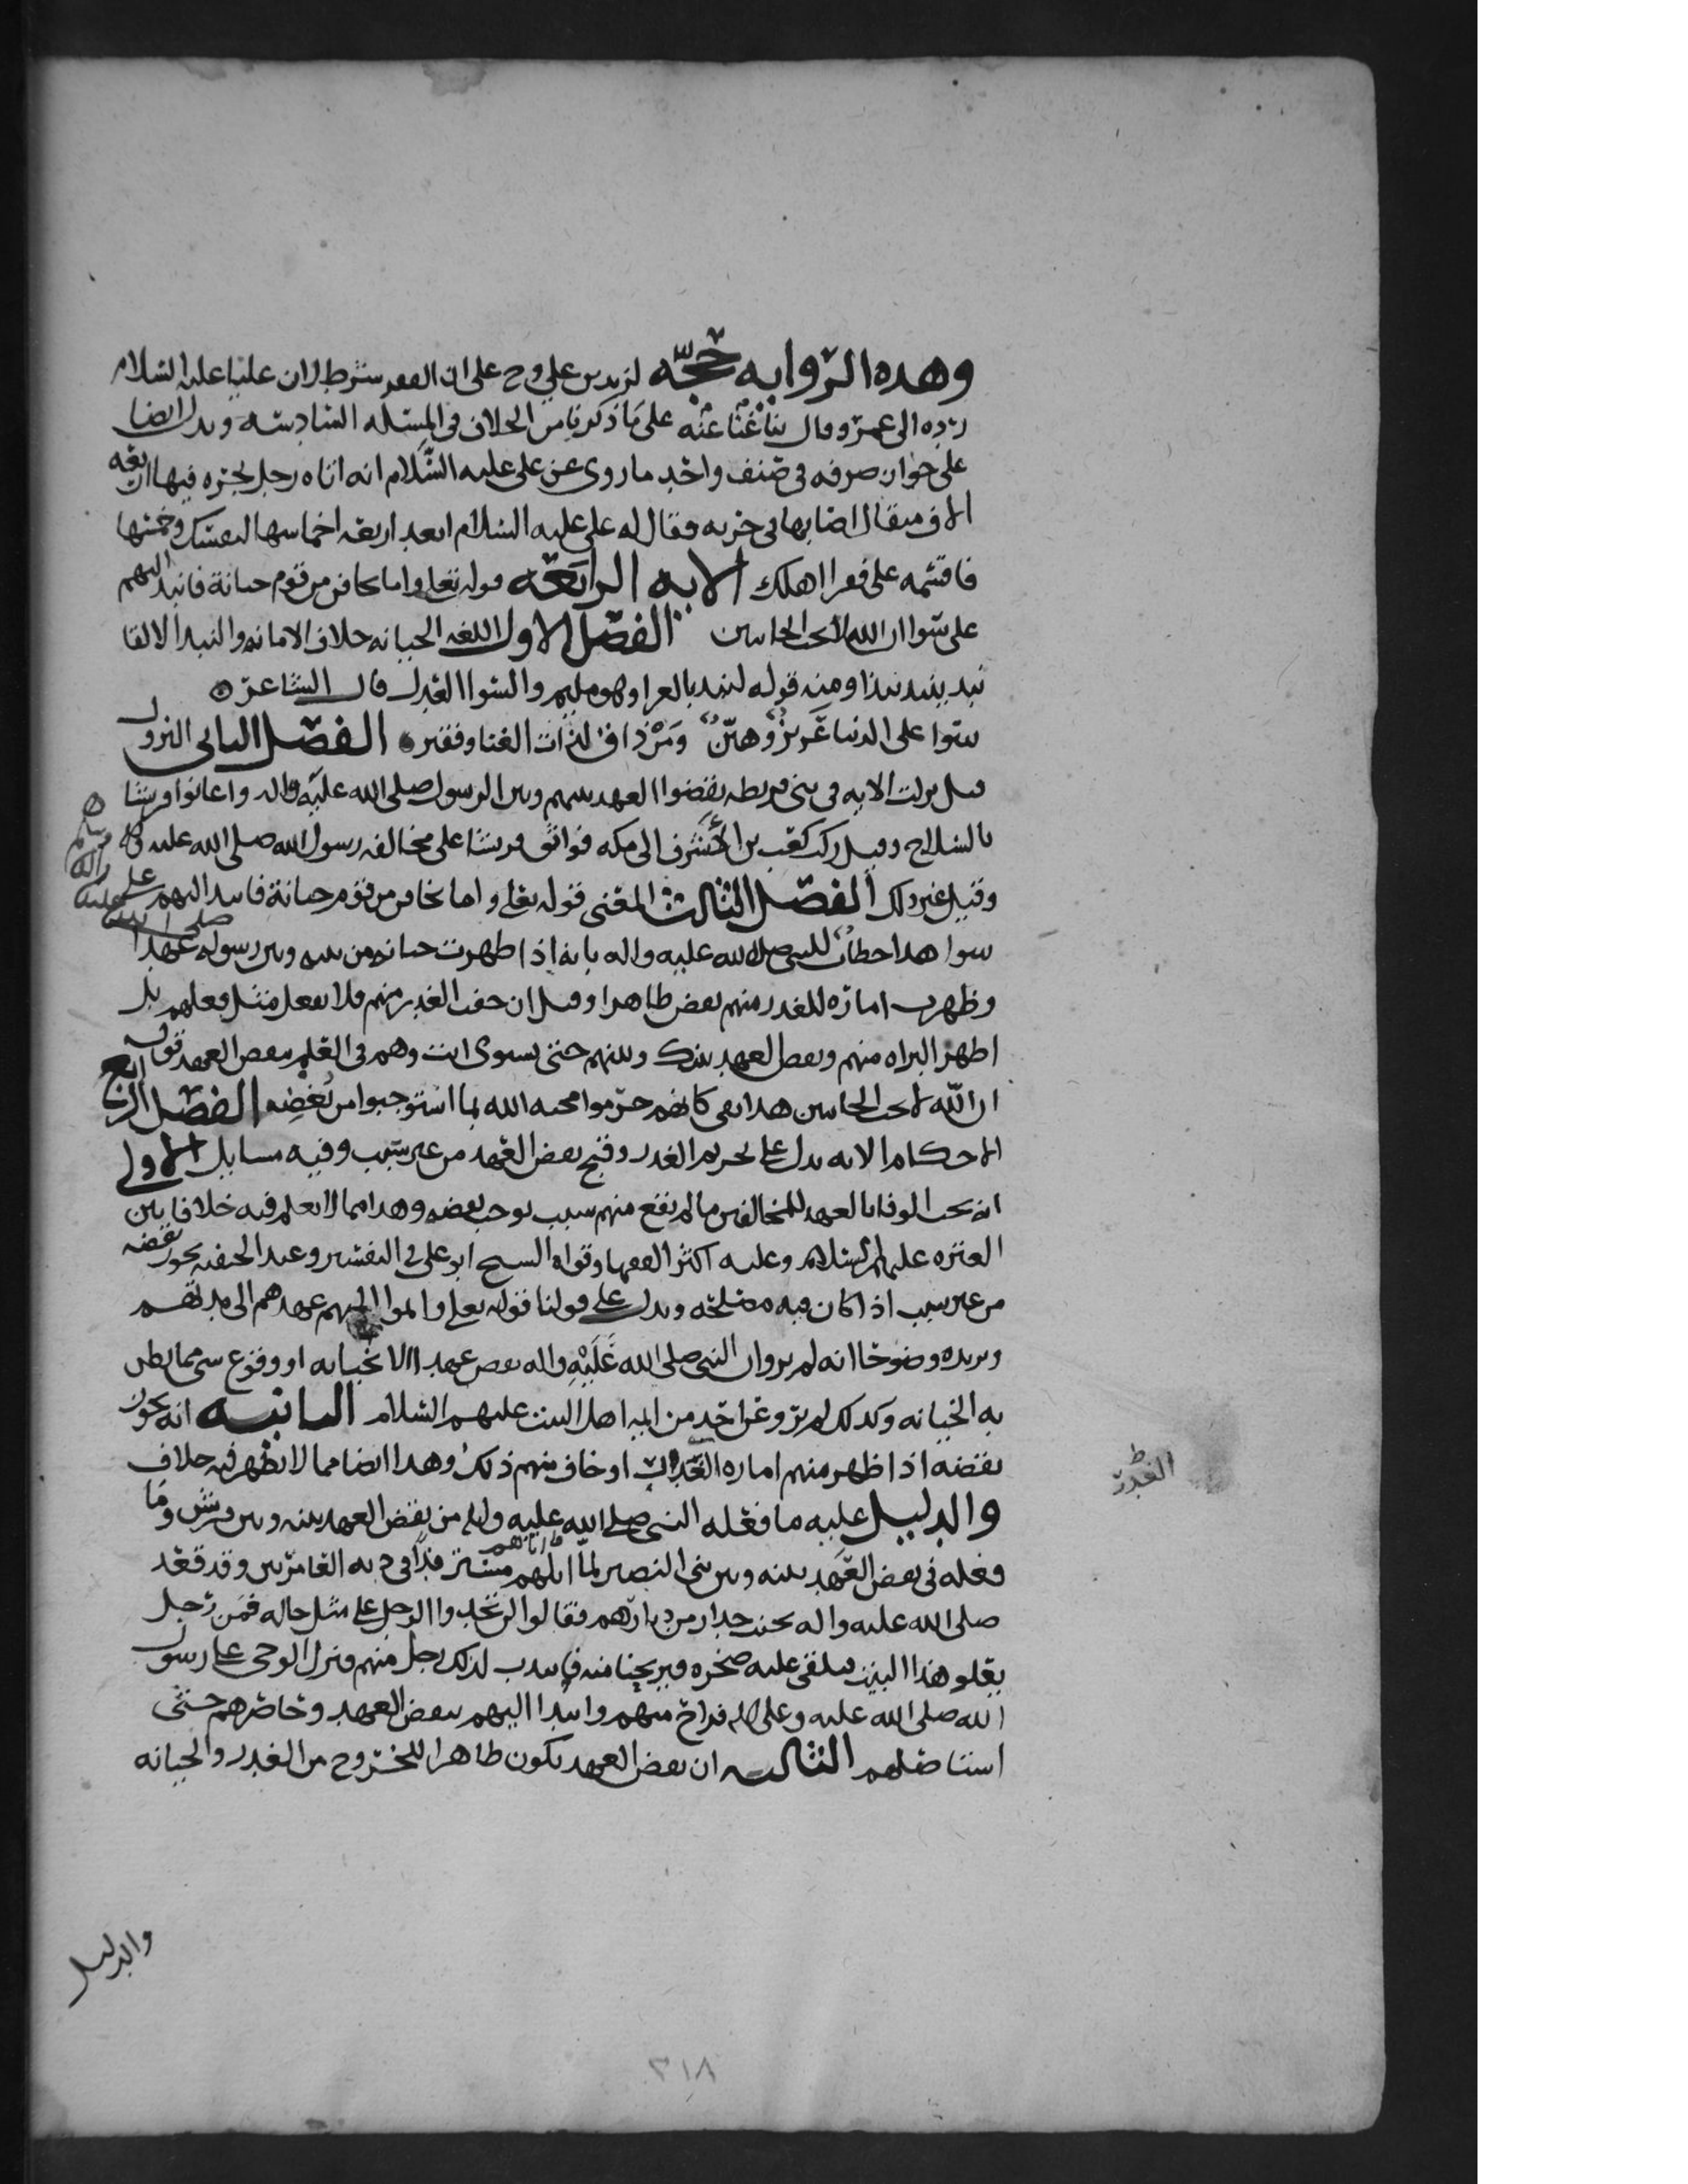 وهذه الرواية حجة لزيد بن علي وح على ان الفقر شرط لان عليا عليه السلام
رده الى عمر وقال بنا غنا عنه على ما ذكرنا من الخلاف في المسئلة السادسة ويدل ايضا
على جواز صرفه في صنف واحد ما روي عن علي عليه السلام انه اتاه رجل بجرة فيها اربعة
الاف مثقال اصابها في خربه فقال له علي عليه السلام ابعد اربعة اخماسها لنفسك وخمسها
فاقسمه على فقرا اهلك الاية الرابعة قوله تعلى واما تخافن من قوم خيانة فانبذ اليهم
على سوا ان الله لا يحب الخاينين الفصل الاول اللغة الخيانه خلاف الامانه والنبذ الالقا
نبذ ينبذ نبذا ومنه قوله لنبذ بالعرا وهو مليم والسوا العدل قال الشاعر
سوا على الدنيا عزيز وهين ومن ذاق لذات الغنا وفقير الفصل الثاني النزول
قيل نزلت الاية في بني قريظه نقضوا العهد بينهم وبين الرسول صلى الله عليه واله واعانوا قريشا
بالسلاح وقيل ركب كعب بن الاشرف الى مكه فوافق قريشا على مخالفة رسول الله صلى الله عليه
وقيل غير ذلك الفصل الثالث المعنى قوله تعلى واما تخافن من قوم خيانة فانبذ اليهم على
سوا هذا خطاب للنبي صلى الله عليه واله بانه اذا ظهرت خيانه من بينه وبين رسوله صلى الله عليه واله عهدا
وظهرت امارة للغدر منهم نقض ظاهرا وقيل ان خفت الغدر منهم فلا تفعل مثل فعلهم بل
اظهر البراه منهم ونقض العهد بينك وبينهم حتى يستوي انت وهم في العلم بنقض العهد قوله
ان الله لا يحب الخاينين هذا نفي كانهم حرموا محبة الله بما استوجبوا من بغضه الفصل الرابع
الاحكام الاية تدل على تحريم الغدر وقبح نقض العهد من غير سبب وفيه مسايل الاولى
انه يجب الوفا بالعهد للمخالفين ما لم يقع منهم سبب يوجب نقضه وهذا مما لا نعلم فيه خلافا بين
العترة عليهم السلام وعليه اكثر الفقها وقواه الشيخ ابو علي في التفسير وعند الحنفية يجوز نقضه
من غير سبب اذا كان فيه مصلحة ويدل على قولنا قوله تعلى واتموا اليهم عهدهم الى مدتهم
ويزيده وضوحا انه لم يرو ان النبي صلى الله عليه واله نقض عهدا الا لخيانه او وقوع شي مما يظن
به الخيانه وكذلك لم يرو عن احد من ايمه اهل البيت عليهم السلام الثانية انه يجوز
نقضه اذا ظهر منهم امارة الغدر او خاف منهم ذلك وهذا ايضا مما لا يظهر فيه خلاف
الغدر
والدليل عليه ما فعله النبي صلى الله عليه واله من نقض العهد بينه وبين قريش وما
فعله في نقض العهد بينه وبين بني النضير لما اتاهم في دية العامريين وقد قعد
صلى الله عليه واله بجنب جدار من ديارهم فقالوا لن تجدوا الرجل على مثل حاله فمن رجل
يعلو هذا البيت فيلقي عليه صخره فيريحنا منه فانتدب لذلك رجل منهم فنزل الوحي على رسول
الله صلى الله عليه وعلى اله فراح منهم وانبذ اليهم بنقض العهد وحاصرهم حتى
استاصلهم الثالثة ان نقض العهد يكون ظاهرا للخروج من الغدر والخيانه
والدليل
٢١٨